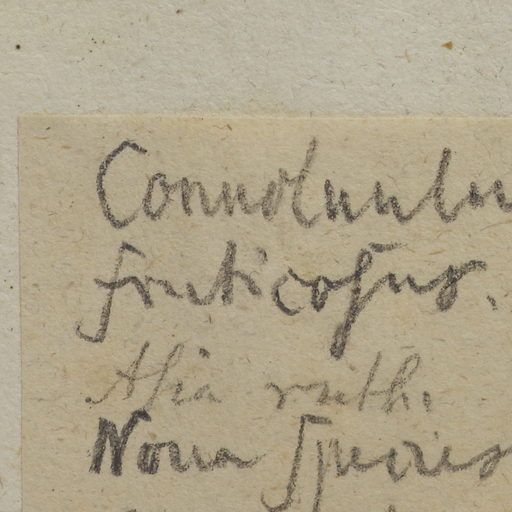 Convolvulu
fruticosus.
Asia ruth.
Nova Species